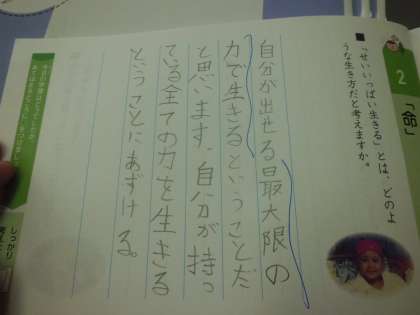 2 「命」
■「せいいっぱい生きる」とは、どのよ
うな生き方だと考えますか。
自分が出せる最大限の
力で生きるということだ
と思います。自分が持っ
ている全ての力を生きる
ということにあずける。